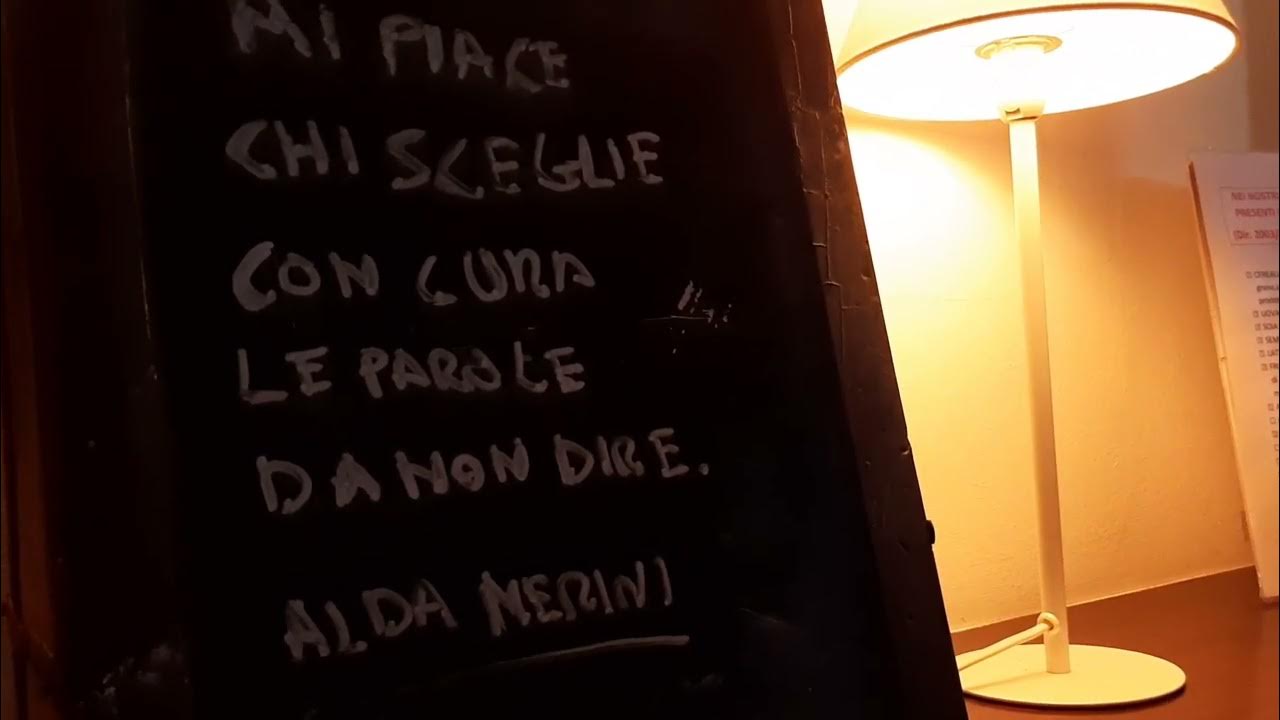 MI PIACE
CHI SCEGLIE
CON CURA
LE PAROLE
DA NON DIRE.
ALDA MERINI
NEI NOSTR
PRESENTI
(Dir. 2003/
CEREAL
UOVA